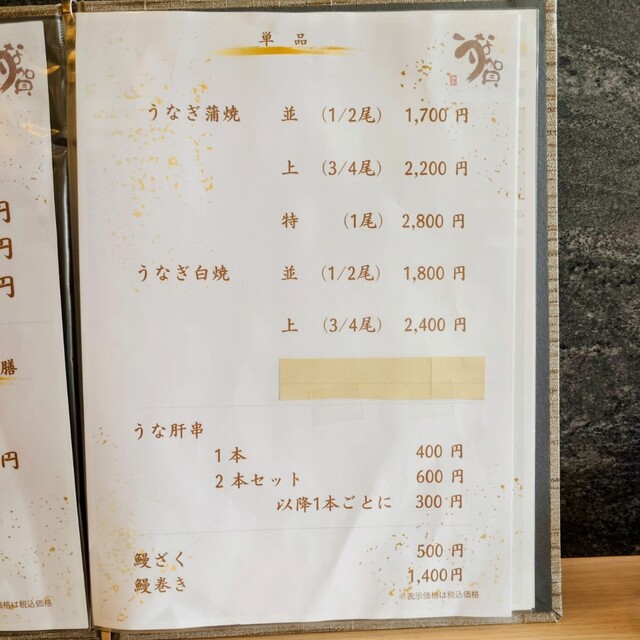 単品
うな賀
うなぎ蒲焼 並 (1/2尾) 1,700 円
上 (3/4尾) 2,200 円
特 (1尾) 2,800 円
うなぎ白焼 並 (1/2尾) 1,800 円
上 (3/4尾) 2,400 円
うな肝串
1本 400 円
2本セット 600 円
以降1本ごとに 300 円
鰻ざく 500 円
鰻巻き 1,400 円
※表示価格は税込価格
円
円
円
膳
円
価格は税込価格